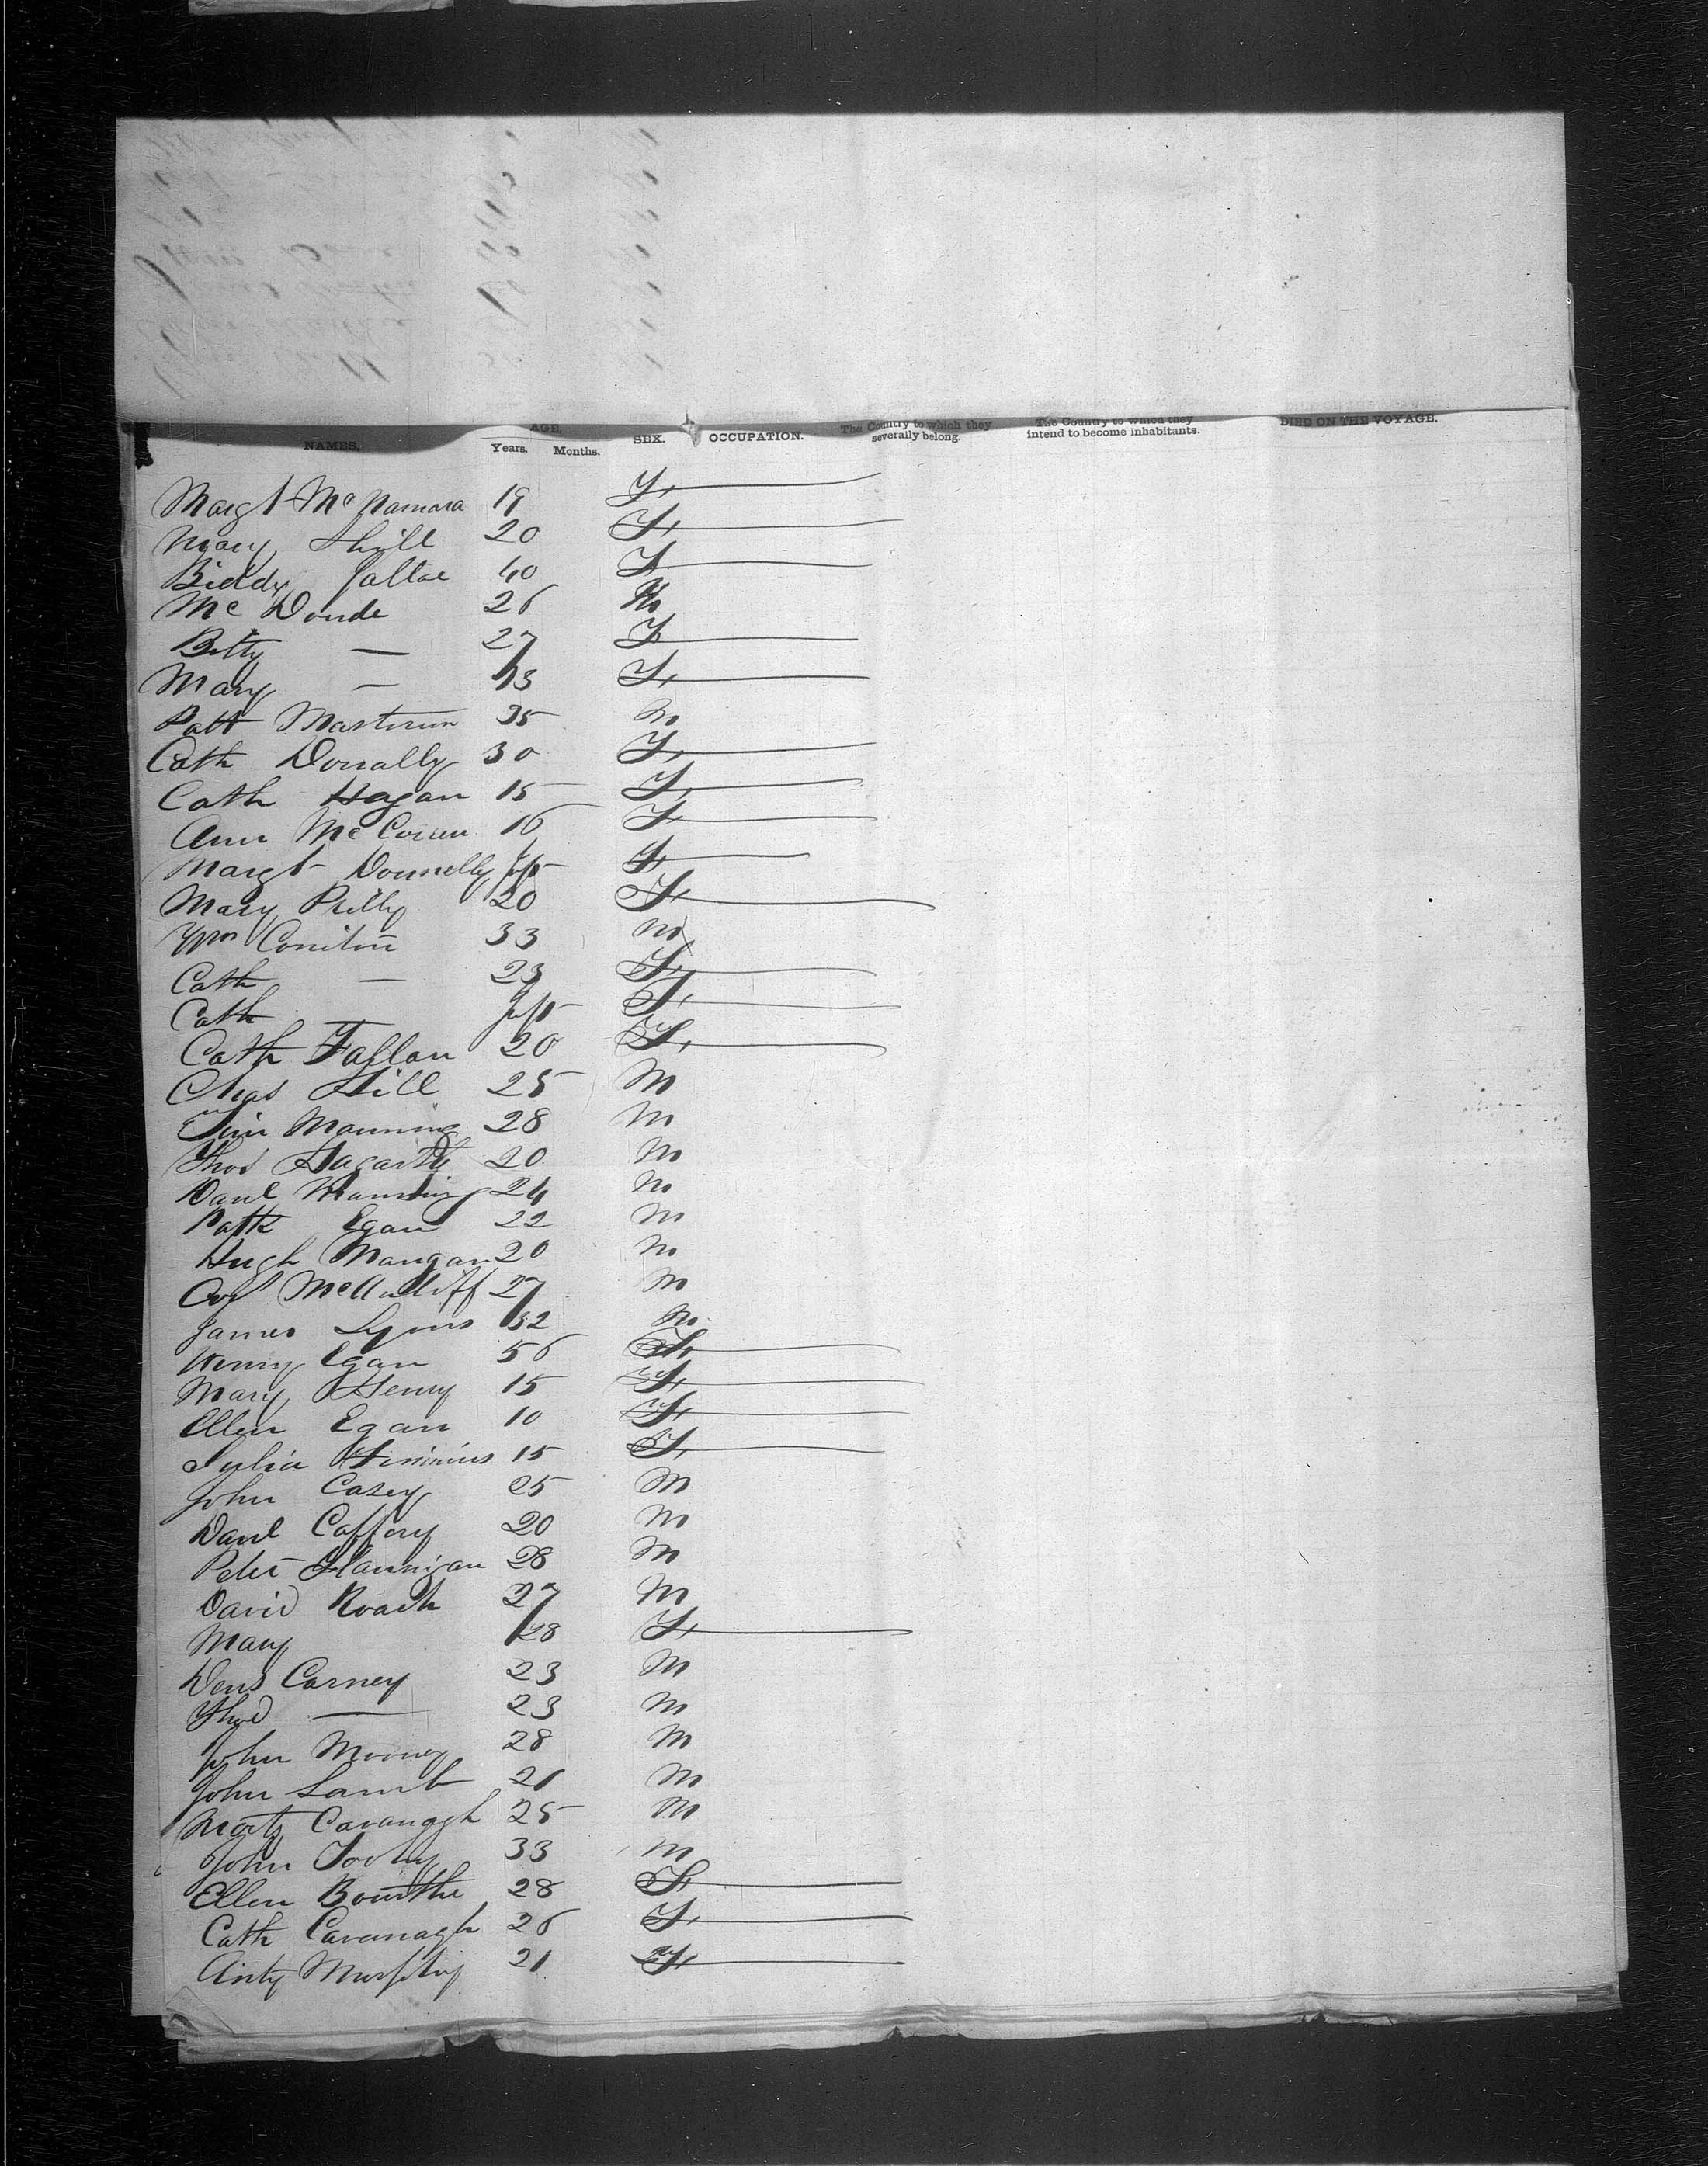 AGE.
The Country to which they The Country to which they DIED ON THE VOYAGE.
NAMES. Years. Months. SEX. OCCUPATION. severally belong. intend to become inhabitants.
Margt McNamara 19 F
Mary 20 F
Biddy 40 F
Mc 26 M
Betty — 27 F
Mary — 13 F
Patt 35 M
Cath Donally 30 F
Cath Hagan 15 F
Ann Mc 16 F
Margt Donnelly Inft F
Mary 20 F
Wm 33 M
Cath — 23 F
Cath — Inft F
Cath Fallan 20 F
Chas Hill 25 M
Tim Manning 28 M
Thos 20 M
Danl Manning 24 M
Patk Egan 22 M
Hugh Mangan 20 M
McAuliff 27 M
James Lyons 32 M
Egan 56 F
Mary Henry 15 F
Ellen Egan 10 F
Julia 15 F
John Casey 25 M
Danl Caffory 20 M
Peter Flannigan 28 M
David Roach 27 M
Mary 28 F
Dens Carney 23 M
Thos — 23 M
John Mooney 28 M
John Lamb 21 M
Cavanagh 25 M
John 33 M
Ellen 28 F
Cath Cavanagh 26 F
Murphy 21 F